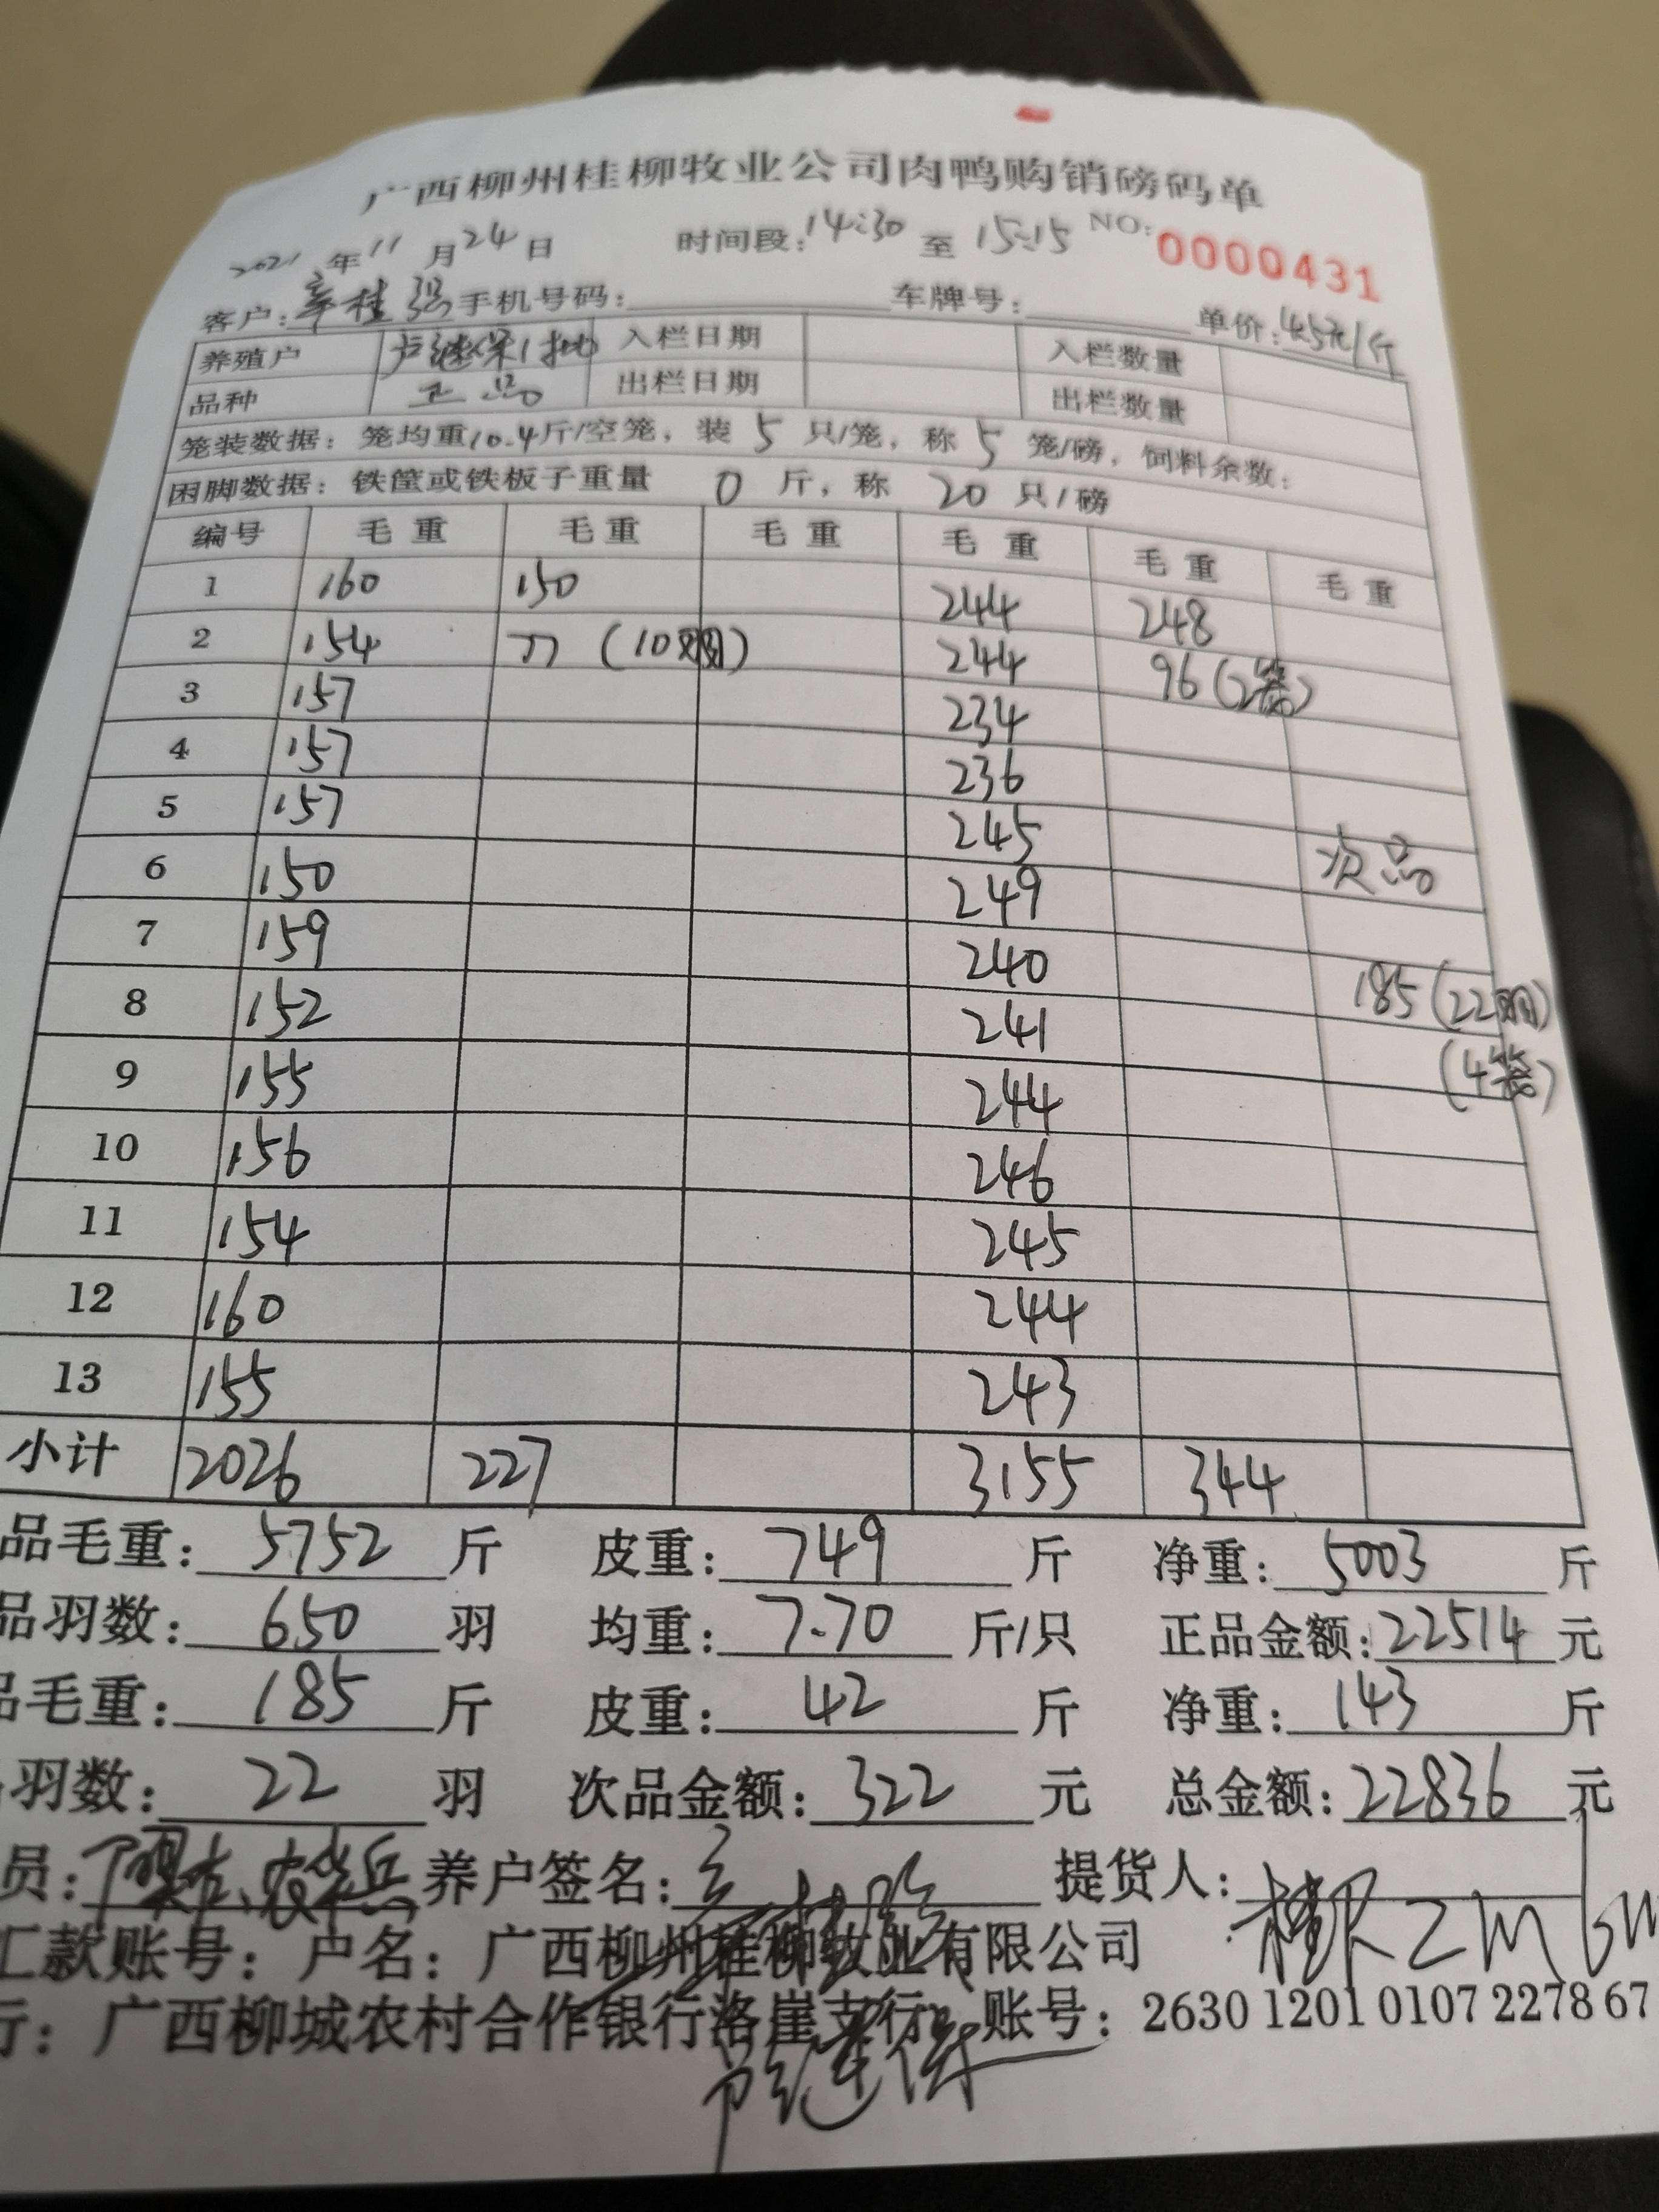 广西柳州桂柳牧业公司肉鸭购销磅码单
2021年11月24日 时间段:14:30至15:15 NO:0000431
客户:韦桂强 手机号码: 车牌号: 单价:4.5元/斤
养殖户 卢继保1批 入栏日期 入栏数量
品种 正品 出栏日期 出栏数量
笼装数据:笼均重10.4斤/空笼,装5只/笼,称5笼/磅,饲料余数:
困脚数据:铁筐或铁板子重量0斤,称20只/磅
编号 毛重 毛重 毛重 毛重 毛重 毛重
1 160 150 244 248
2 154 77(10羽) 244 96(2笼)
3 157 234
4 157 236
5 157 245 次品
6 150 249
7 159 240 185(22羽)
8 152 241 (4笼)
9 155 244
10 156 246
11 154 245
12 160 244
13 155 243
小计 2026 227 3155 344
品毛重:5752斤 皮重:749斤 净重:5003斤
品羽数:650羽 均重:7.70斤/只 正品金额:22514元
品毛重:185斤 皮重:42斤 净重:143斤
羽数:22羽 次品金额:322元 总金额:22836元
员: 养户签名: 提货人:
汇款账号:户名:广西柳州桂柳牧业有限公司
行:广西柳城农村合作银行洛崖支行 账号:2630 1201 0107 2278 67